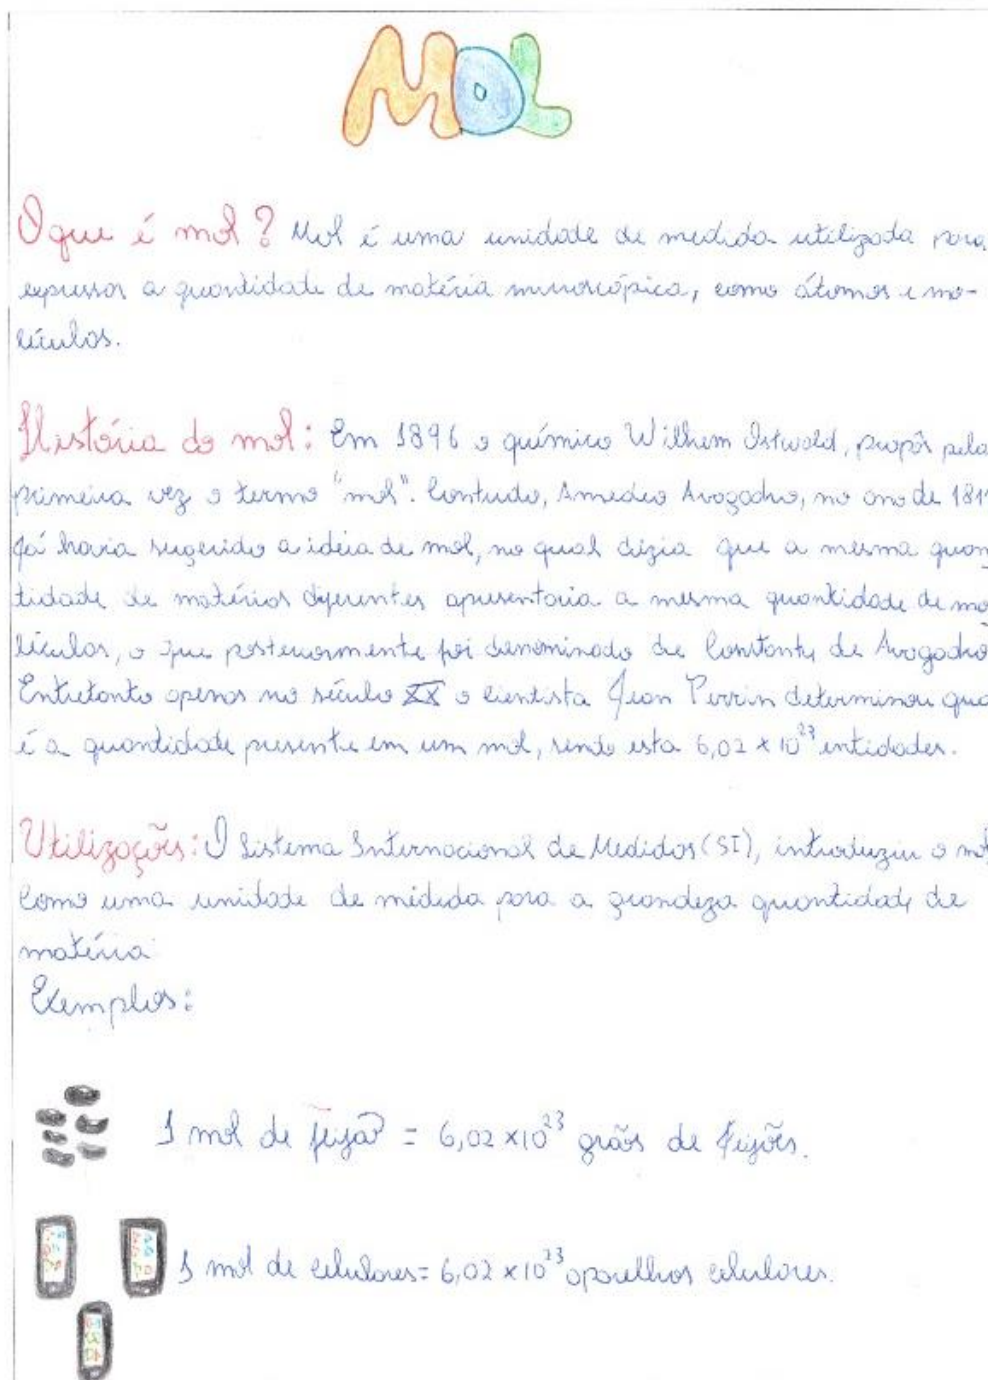 MOL
O que é mol? Mol é uma unidade de medida utilizada para
expressar a quantidade de matéria microscópica, como átomos e mo-
léculas.
História do mol: Em 1896 o químico Wilhem Ostwald, propôs pela
primeira vez o termo "mol". Contudo, Amedeo Avogadro, no ano de 1811
já havia sugerido a idéia de mol, no qual dizia que a mesma quan
tidade de matérias diferentes apresentaria a mesma quantidade de mo
léculas, o que posteriormente foi denominado de Constante de Avogadro
Entretanto apenas no século XX o cientista Jean Perrin determinou qua
é a quantidade presente em um mol, sendo esta 6,02 x 10²³ entidades.
Utilizações: O Sistema Internacional de Medidas (SI), introduziu o mol
como uma unidade de médida para a grandeza quantidade de
matéria
Exemplos:
1 mol de feijão = 6,02 x 10²³ grãos de feijões.
1 mol de celulares = 6,02 x 10²³ aparelhos celulares.